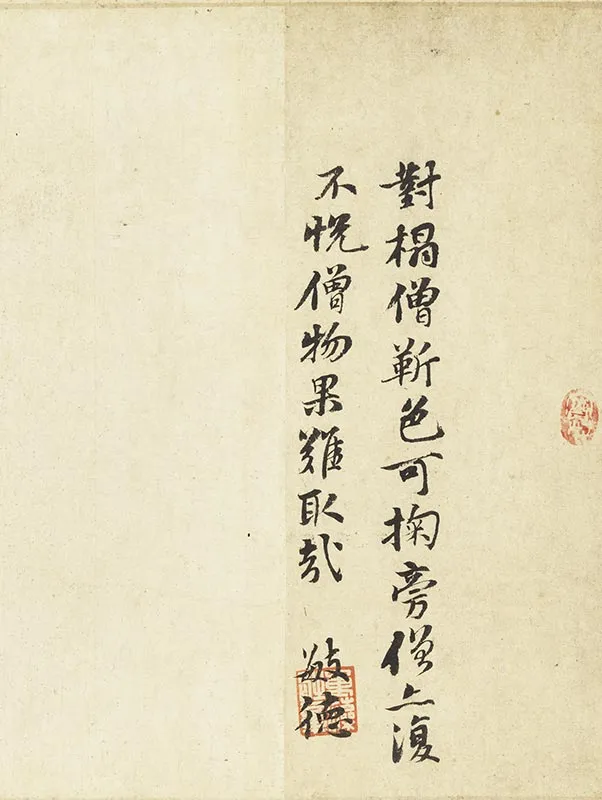 對榻僧靳色可掬旁僧亦復
不悅僧物果難取哉 敏德